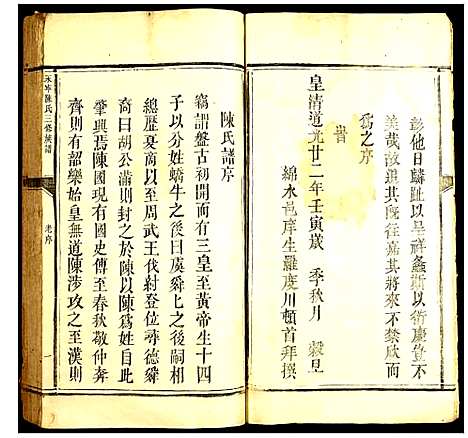 彭他日麟趾以呈祥螽斯以衍慶豈不
美哉故退其既往嘉其將來不禁欣而
爲之序
旹
皇清道光廿二年壬寅歲季秋月穀旦
綿水邑庠生羅慶川頓首拜撰
陳氏譜序
竊謂盤古初開而有三皇至黃帝生十四
子以分姓蟜牛之後因虞舜匕之後嗣相
繼歷夏商以至周武王伐紂登位尋德舜
裔曰胡公滿則封之於陳以陳爲姓自此
肇興焉陳國現有國史傳至春秋敬仲奔
齊則有韶樂始皇無道陳涉攻之至漢則
陳氏三修族譜
老序
一